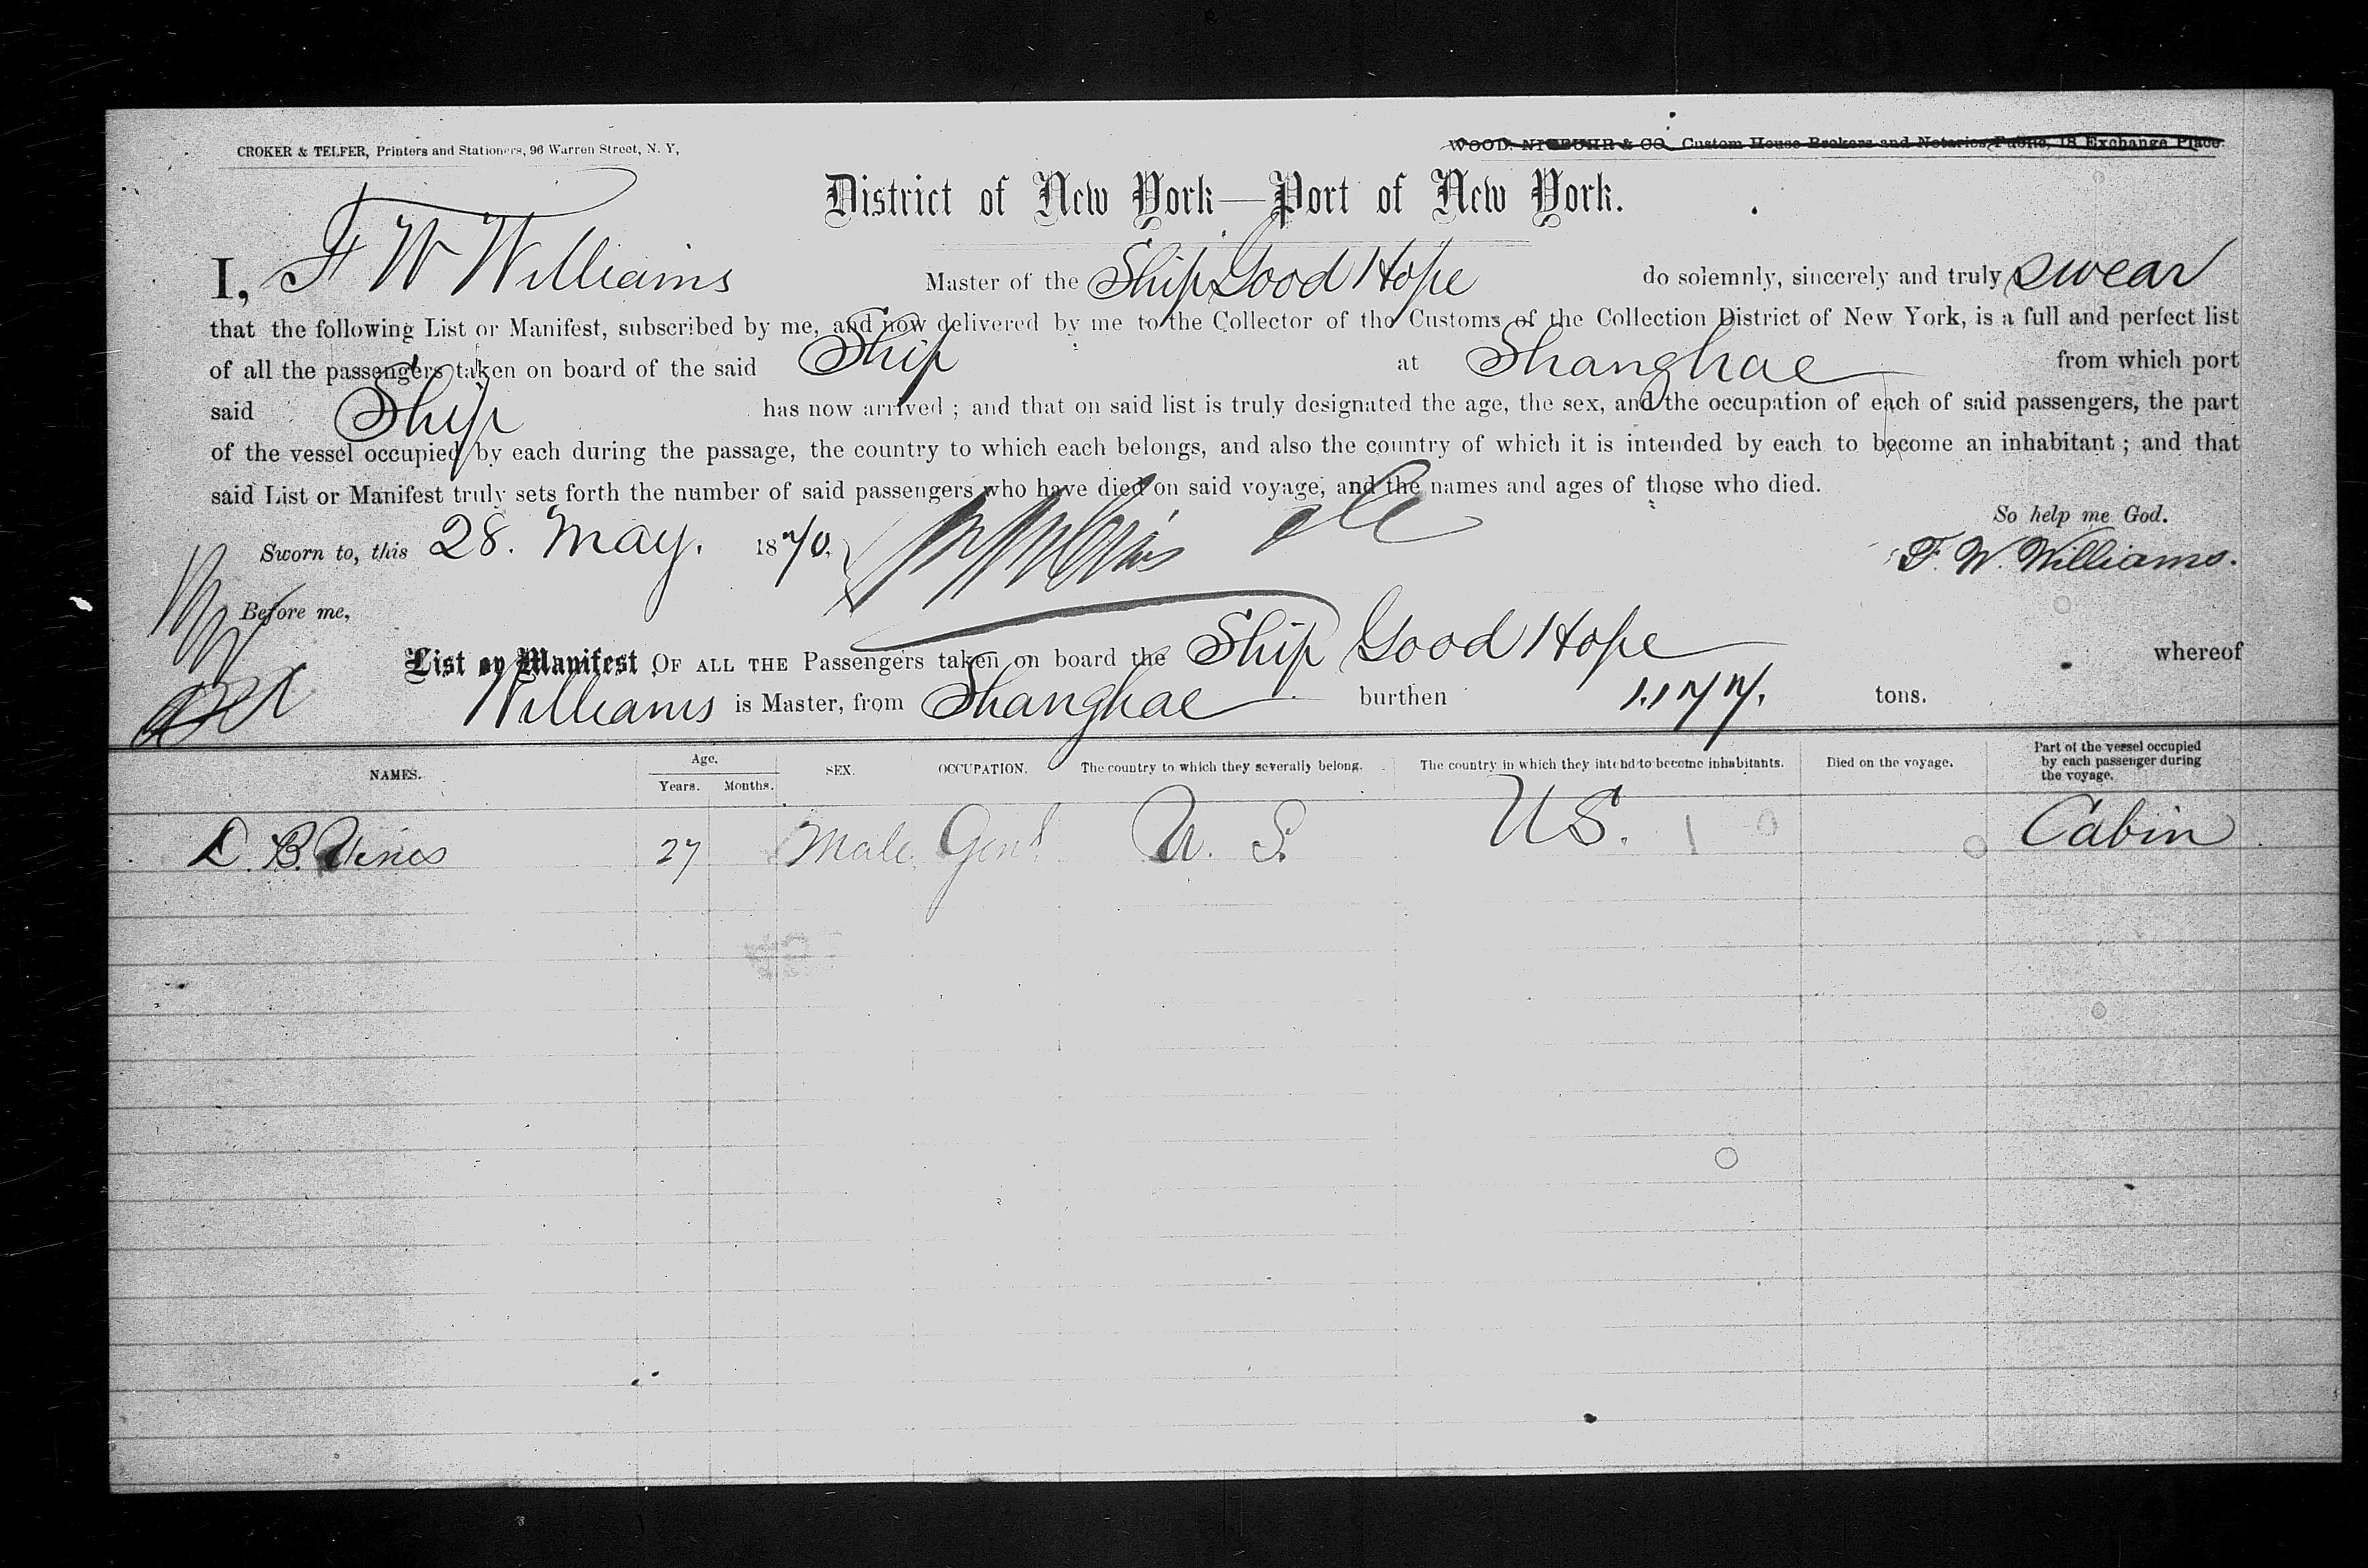 CROKER & TELFER, Printers and Stationers, 96 Warren Street, N. Y,
WOOD, NIEBUHR & CO. Custom House Brokers and Notaries Public, 18 Exchange Place.
District of New York—Port of New York.
I, F W Williams Master of the Ship Good Hope do solemnly, sincerely and truly swear
that the following List or Manifest, subscribed by me, and now delivered by me to the Collector of the Customs of the Collection District of New York, is a full and perfect list
of all the passengers taken on board of the said Ship at Shanghae from which port
said Ship has now arrived ; and that on said list is truly designated the age, the sex, and the occupation of each of said passengers, the part
of the vessel occupied by each during the passage, the country to which each belongs, and also the country of which it is intended by each to become an inhabitant ; and that
said List or Manifest truly sets forth the number of said passengers who have died on said voyage, and the names and ages of those who died.
So help me God.
Sworn to, this 28. May. 1870.
F. W. Williams.
Before me,
List or Manifest OF ALL THE Passengers taken on board the Ship Good Hope whereof
Williams is Master, from Shanghae burthen 1.177. tons.
NAMES. Age. Years. Months. SEX. OCCUPATION. The country to which they severally belong. The country in which they intend to become inhabitants. Died on the voyage. Part of the vessel occupied by each passenger during the voyage.
B. 27 Male. Gent U. S. US. Cabin